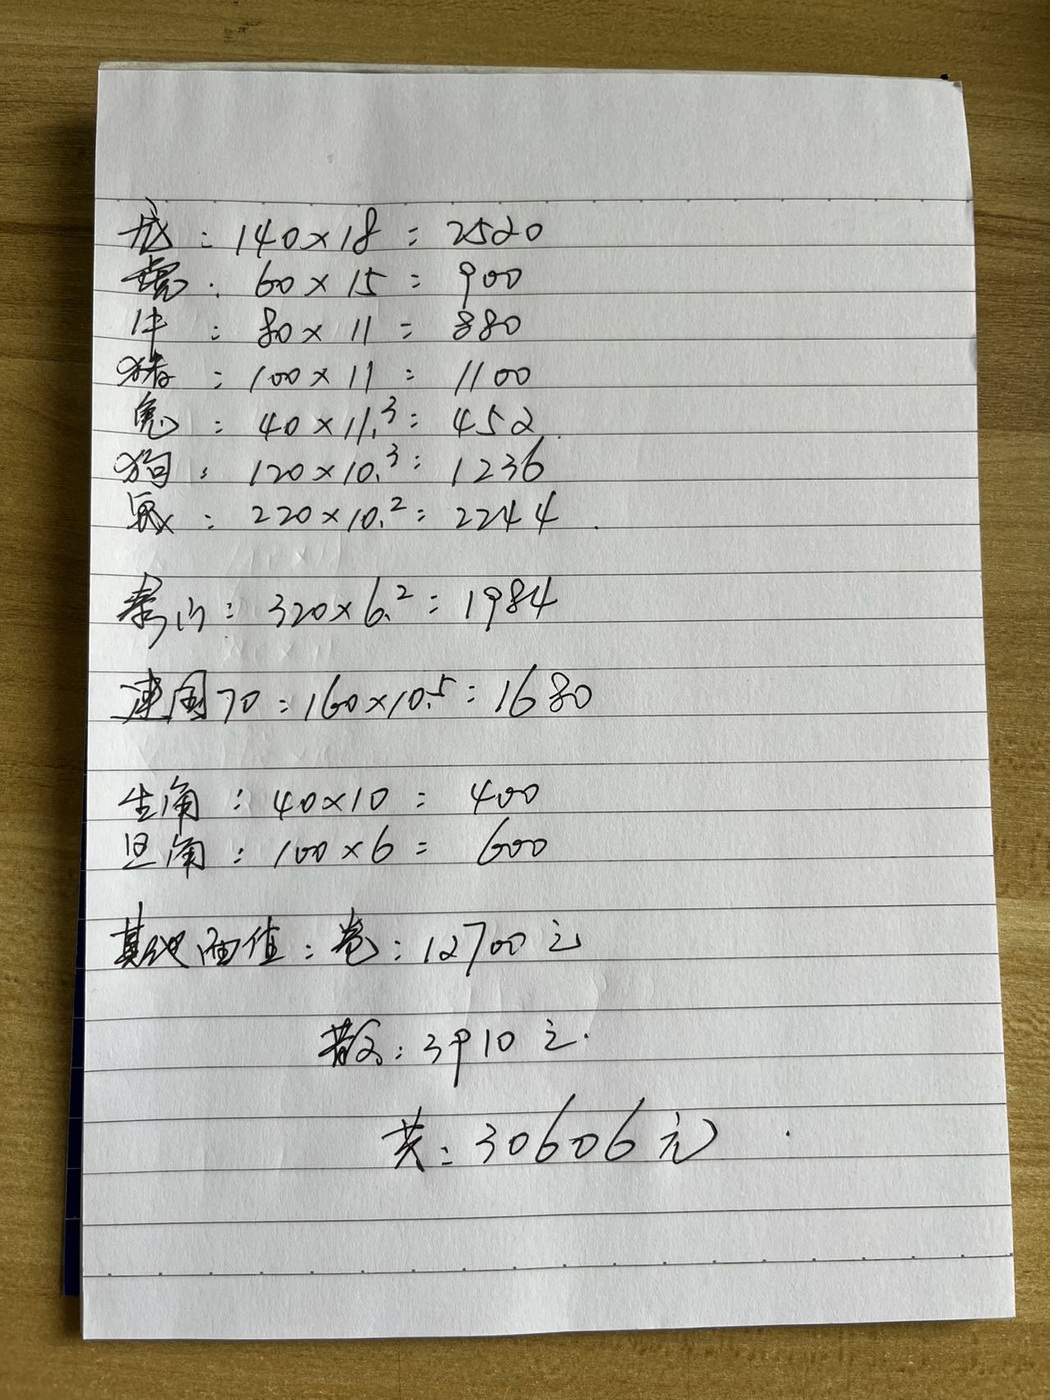 龙：140×18=2520
虎：60×15=900
牛：80×11=880
猪：100×11=1100
兔：40×11.3=452
狗：120×10.3=1236
鼠：220×10.2=2244
泰山：320×6.2=1984
建国70：160×10.5=1680
生角：40×10=400
旦角：100×6=600
其他面值：卷：12700元
散：3910元.
共：30606元